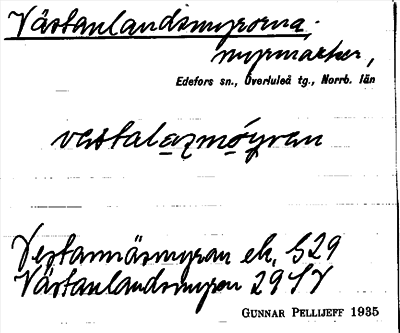 Västanlandsmyrorna,
myrmarker,
Edefors sn., Överluleå tg., Norrb. län
vestalazmöyran
Vestannäsmyran ek. 529
Västanlandsmyren
GUNNAR PELLIJEFF 1935